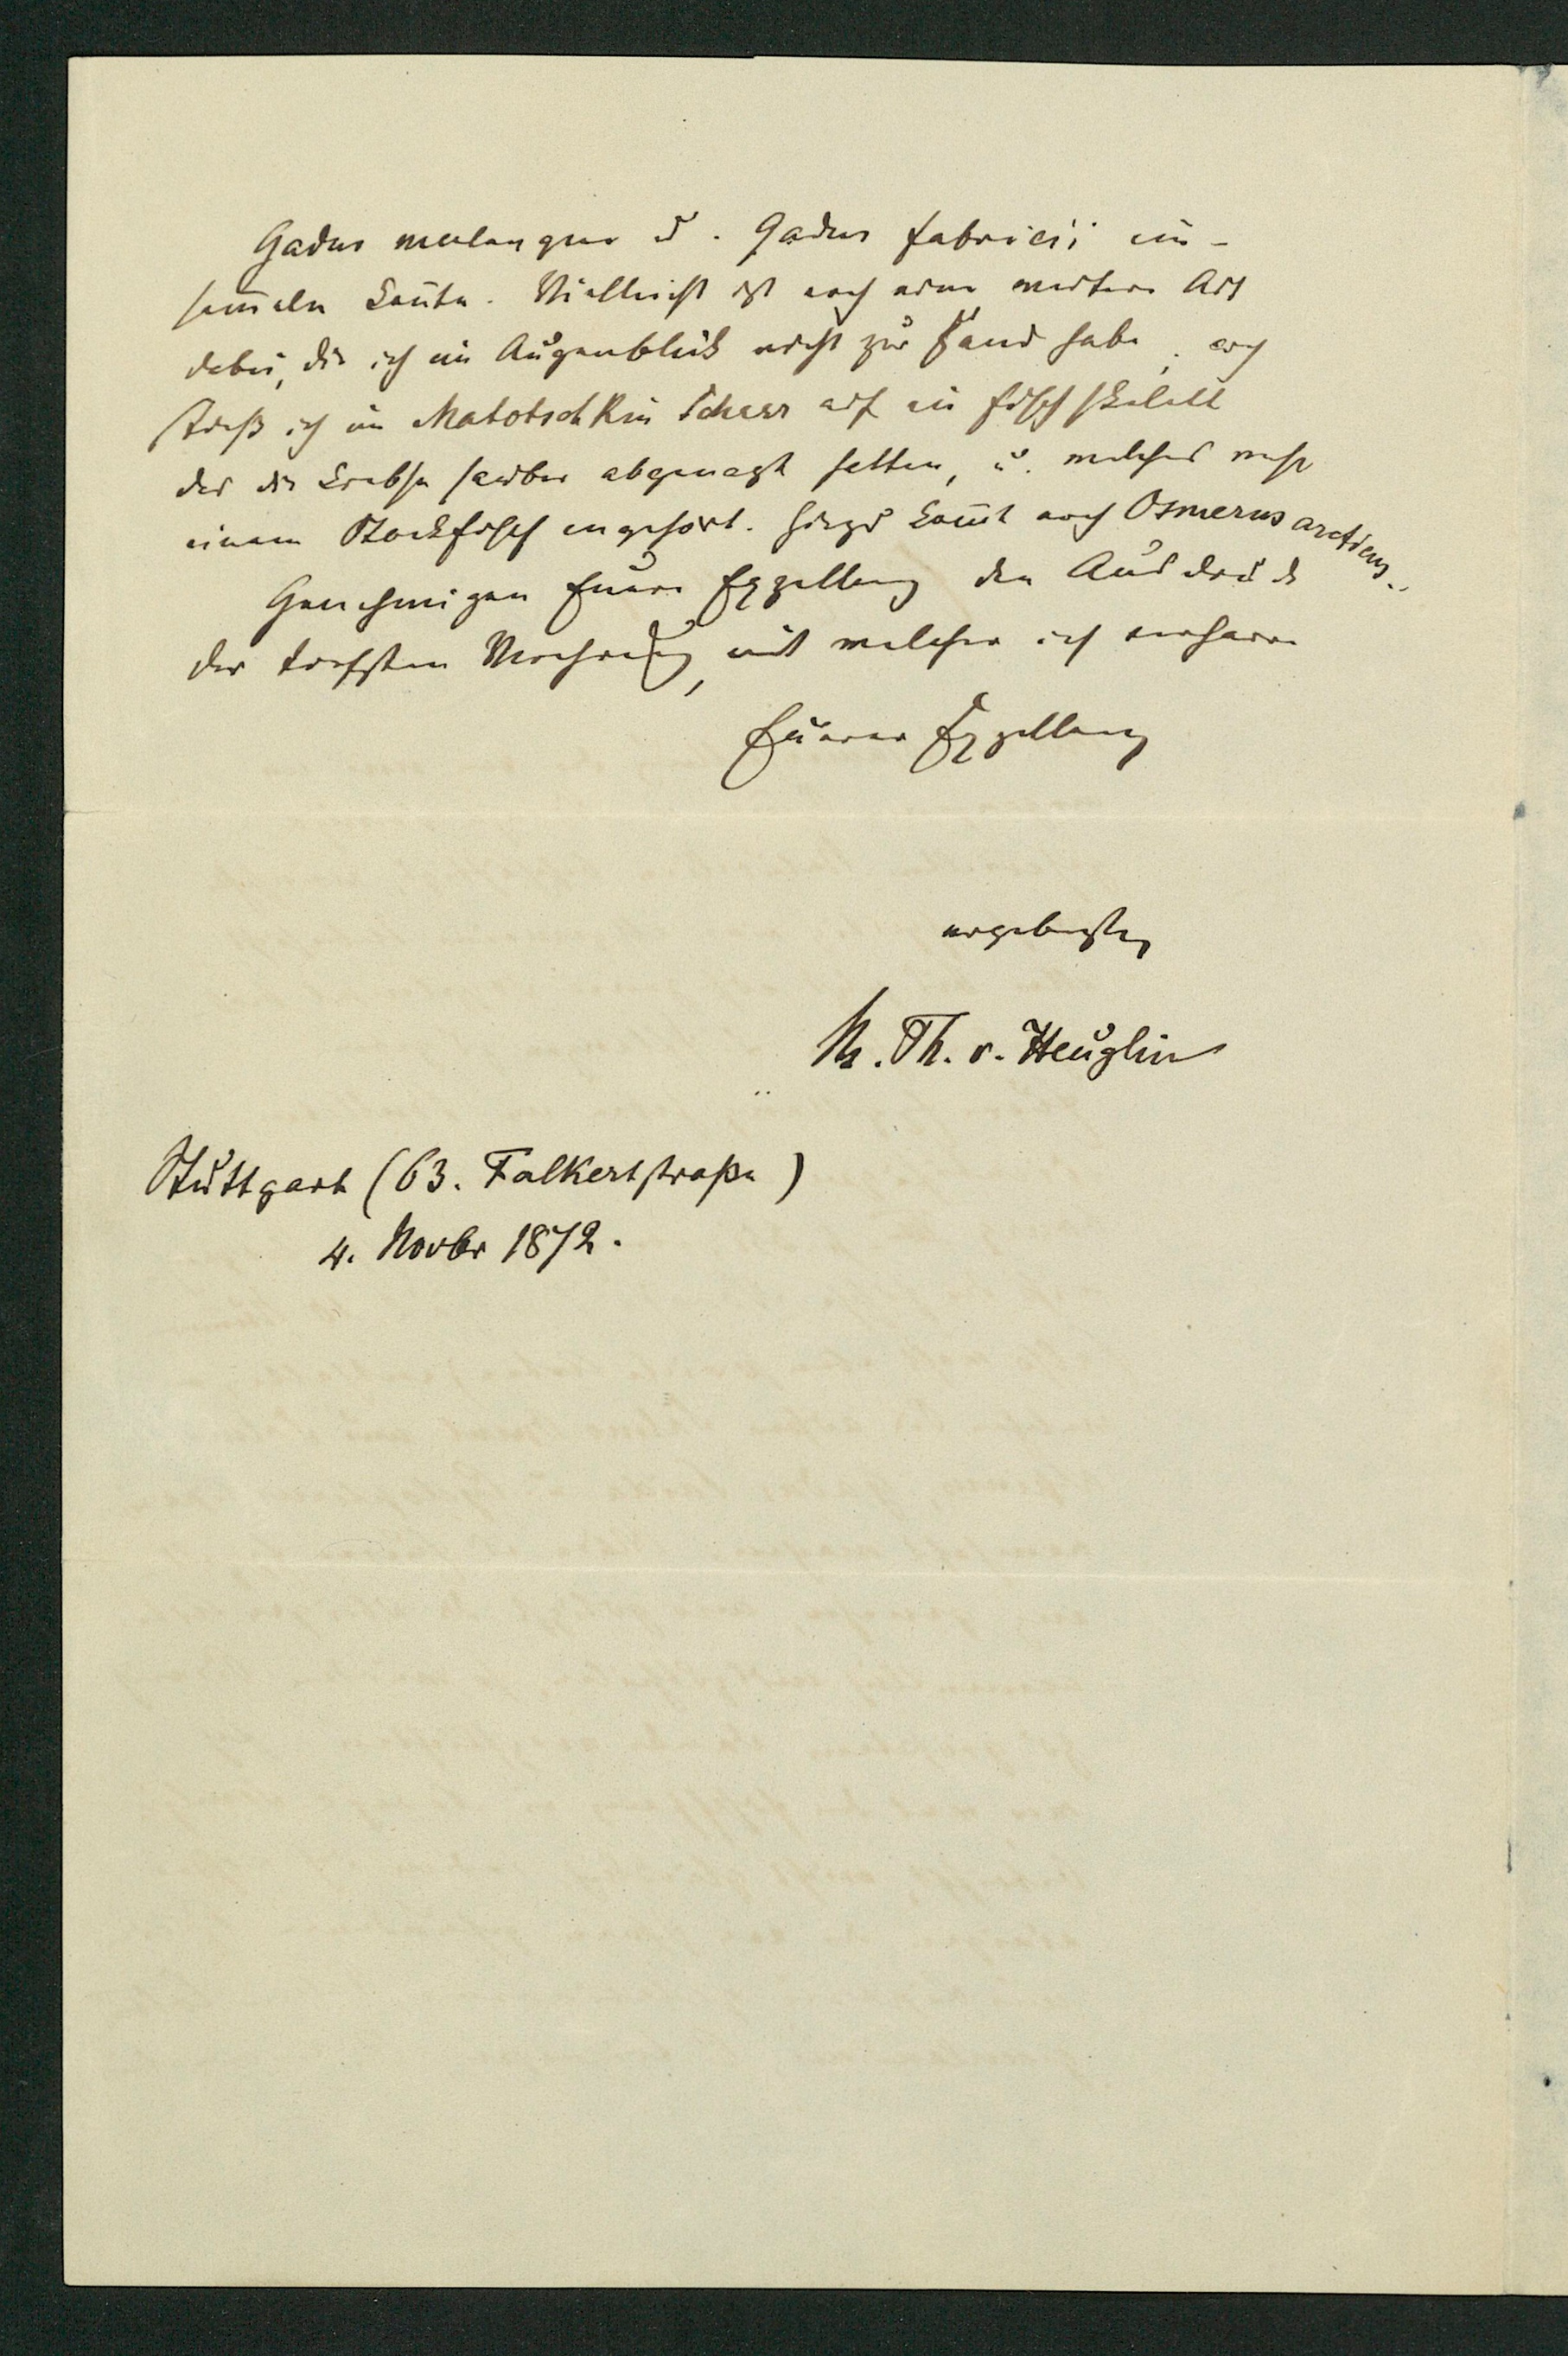 Gadus merlangus u. Gadus fabricii ein-
sam̄eln kon̄te. Vielleicht ist noch eine weitere Art
dabei, die ich im Augenblick nicht zur Hand habe, auch
stieß ich im Matotschkin Scharr auf ein Fischskelett
das die Krebse sauber abgenagt hatten, u. welches wohl
einem Stockfisch angehört. Hiezu kom̄t noch Osmerus arcticus.
Genehmigen Euere Exzellenz den Ausdruck
der tiefsten Verehrung, mit welcher ich verharre
Euerer Exzellenz
ergebenster
M. Th. v. Heuglin
Stuttgart (63. Falkertstraße)
4. Novbr 1872.